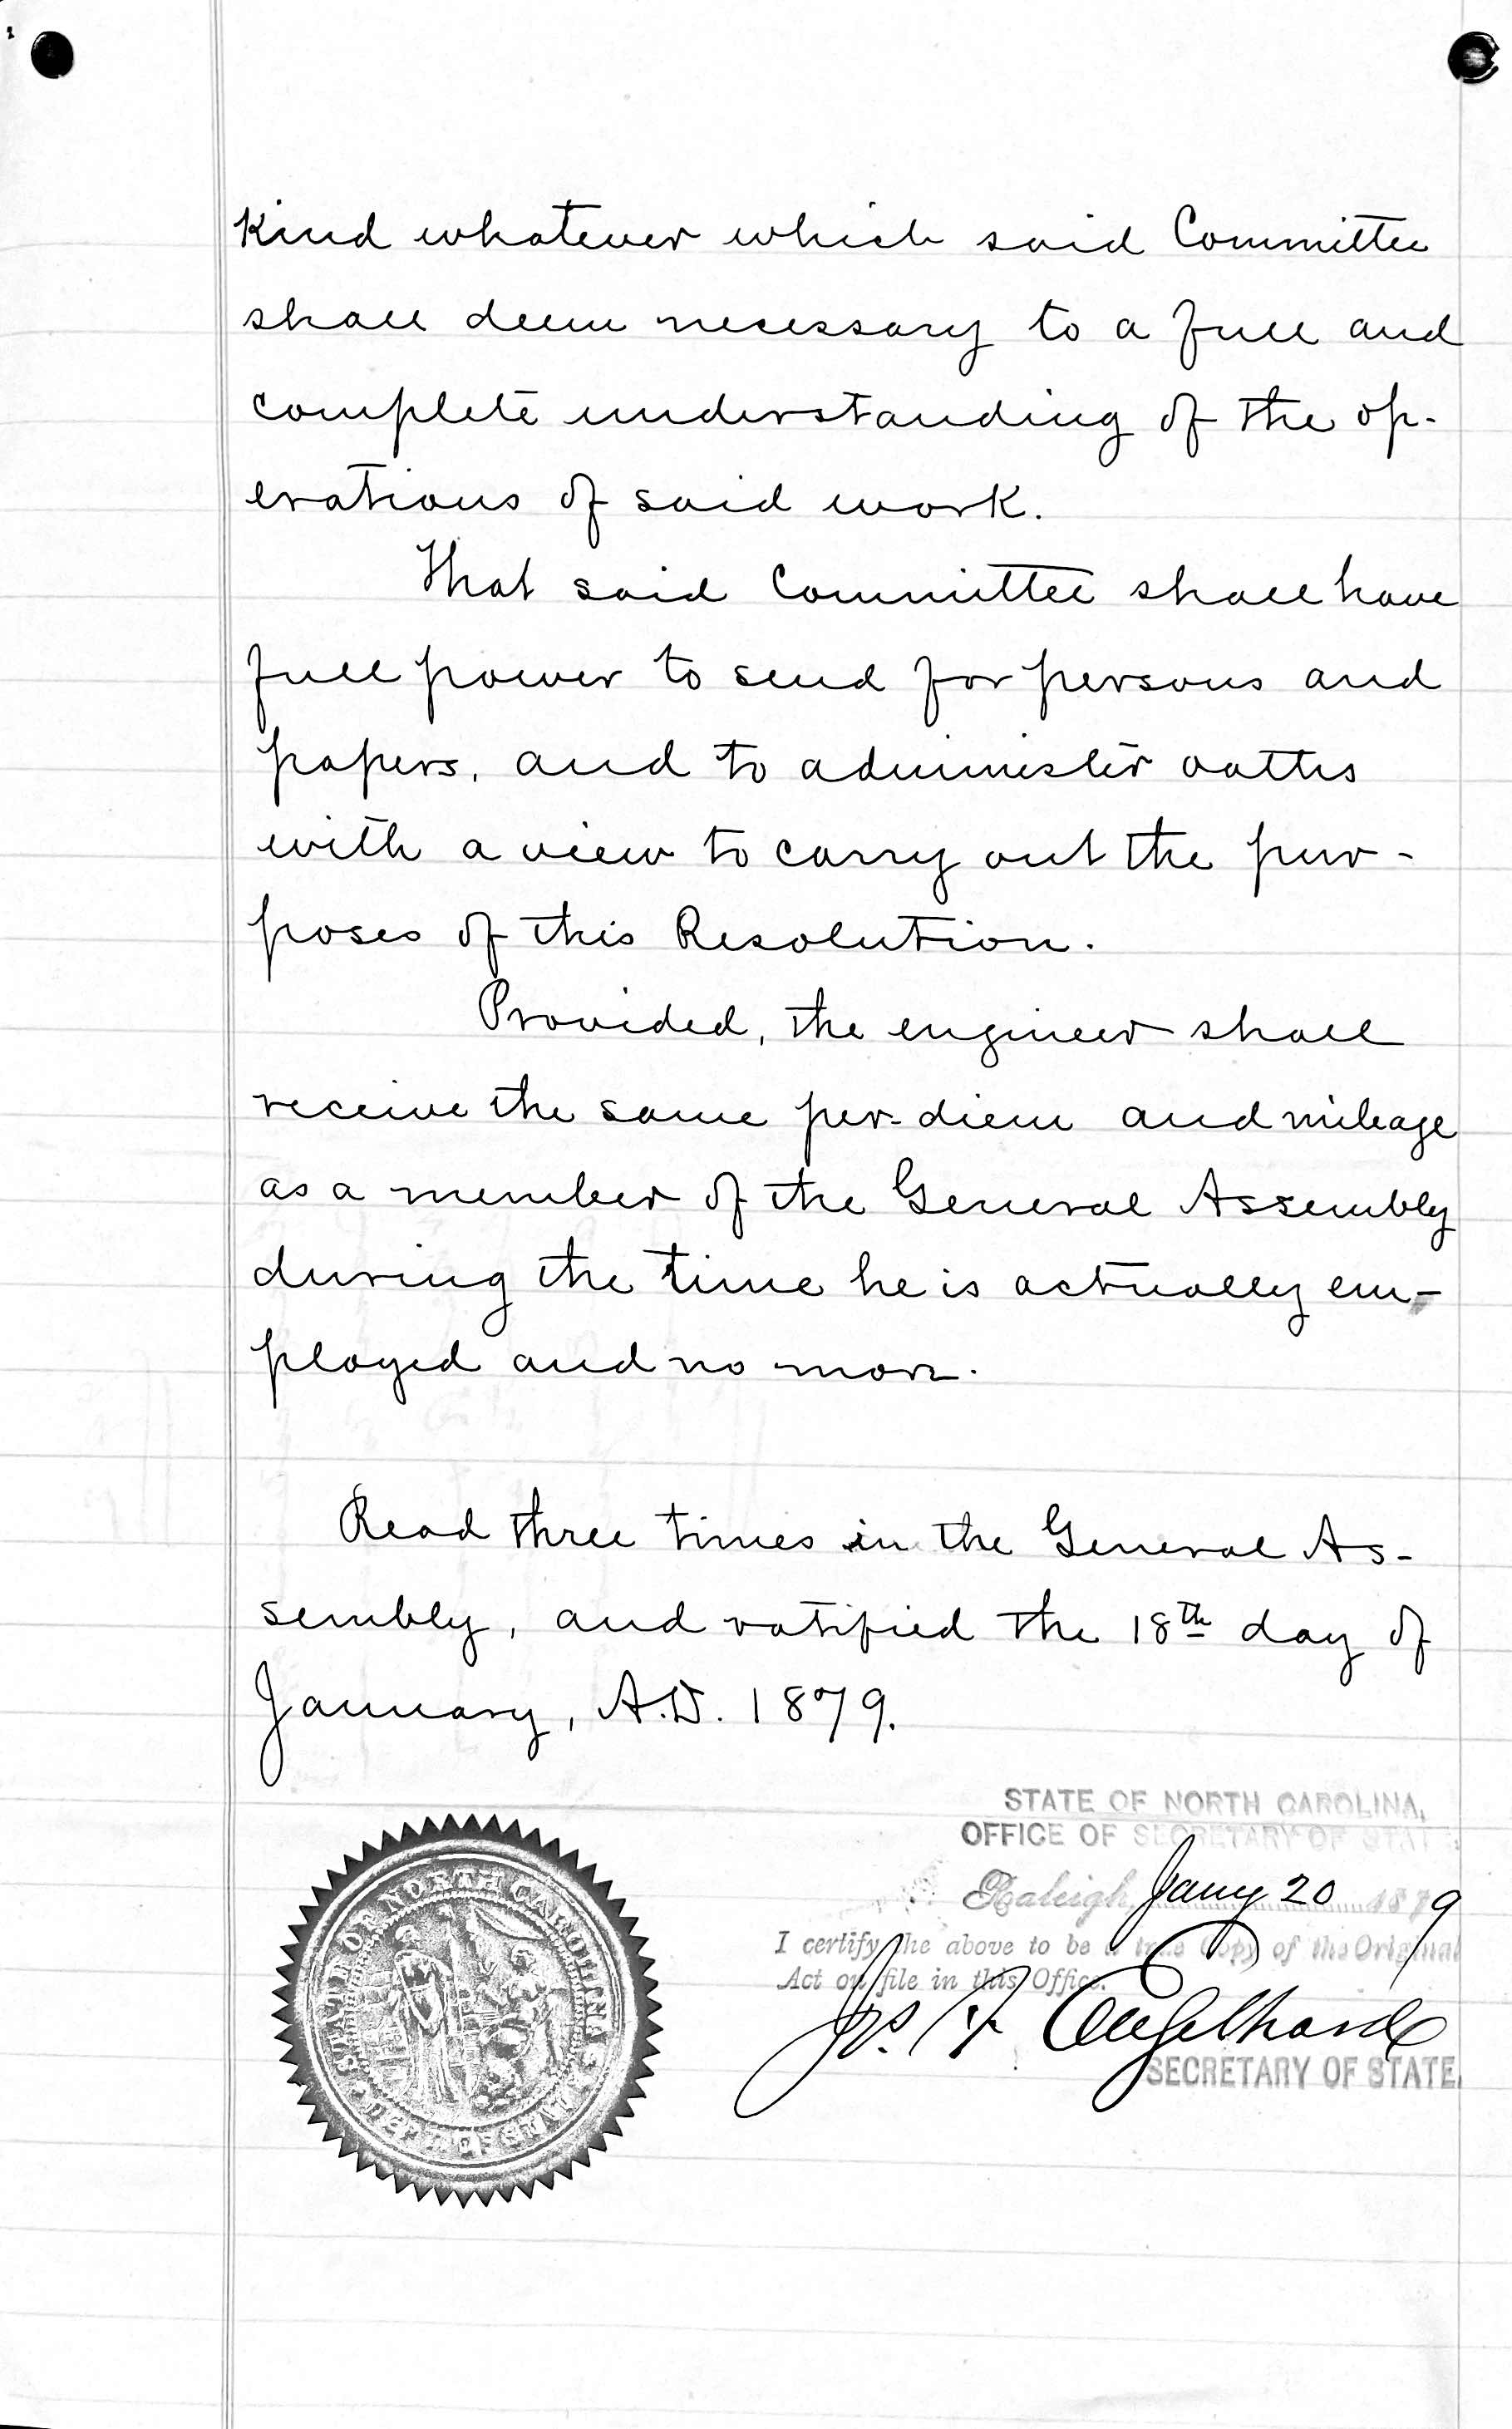 Kind whatever which said Committee
shall deem necessary to a full and
complete understanding of the op-
erations of said work.
That said Committee shall have
full power to send for persons and
papers, and to administer oaths
with a view to carry out the pur-
poses of this Resolution.
Provided, the engineer shall
receive the same per-diem and mileage
as a member of the General Assembly
during the time he is actually em-
ployed and no more.
Read three times in the General As-
sembly, and ratified the 18th day of
January, A.D. 1879.
STATE OF NORTH CAROLINA,
OFFICE OF SECRETARY OF STATE
Raleigh, Jany 20 1879
I certify the above to be a true Copy of the Original
Act on file in this Office.
Jos. A. Engelhard
SECRETARY OF STATE.
STATE OF NORTH CAROLINA